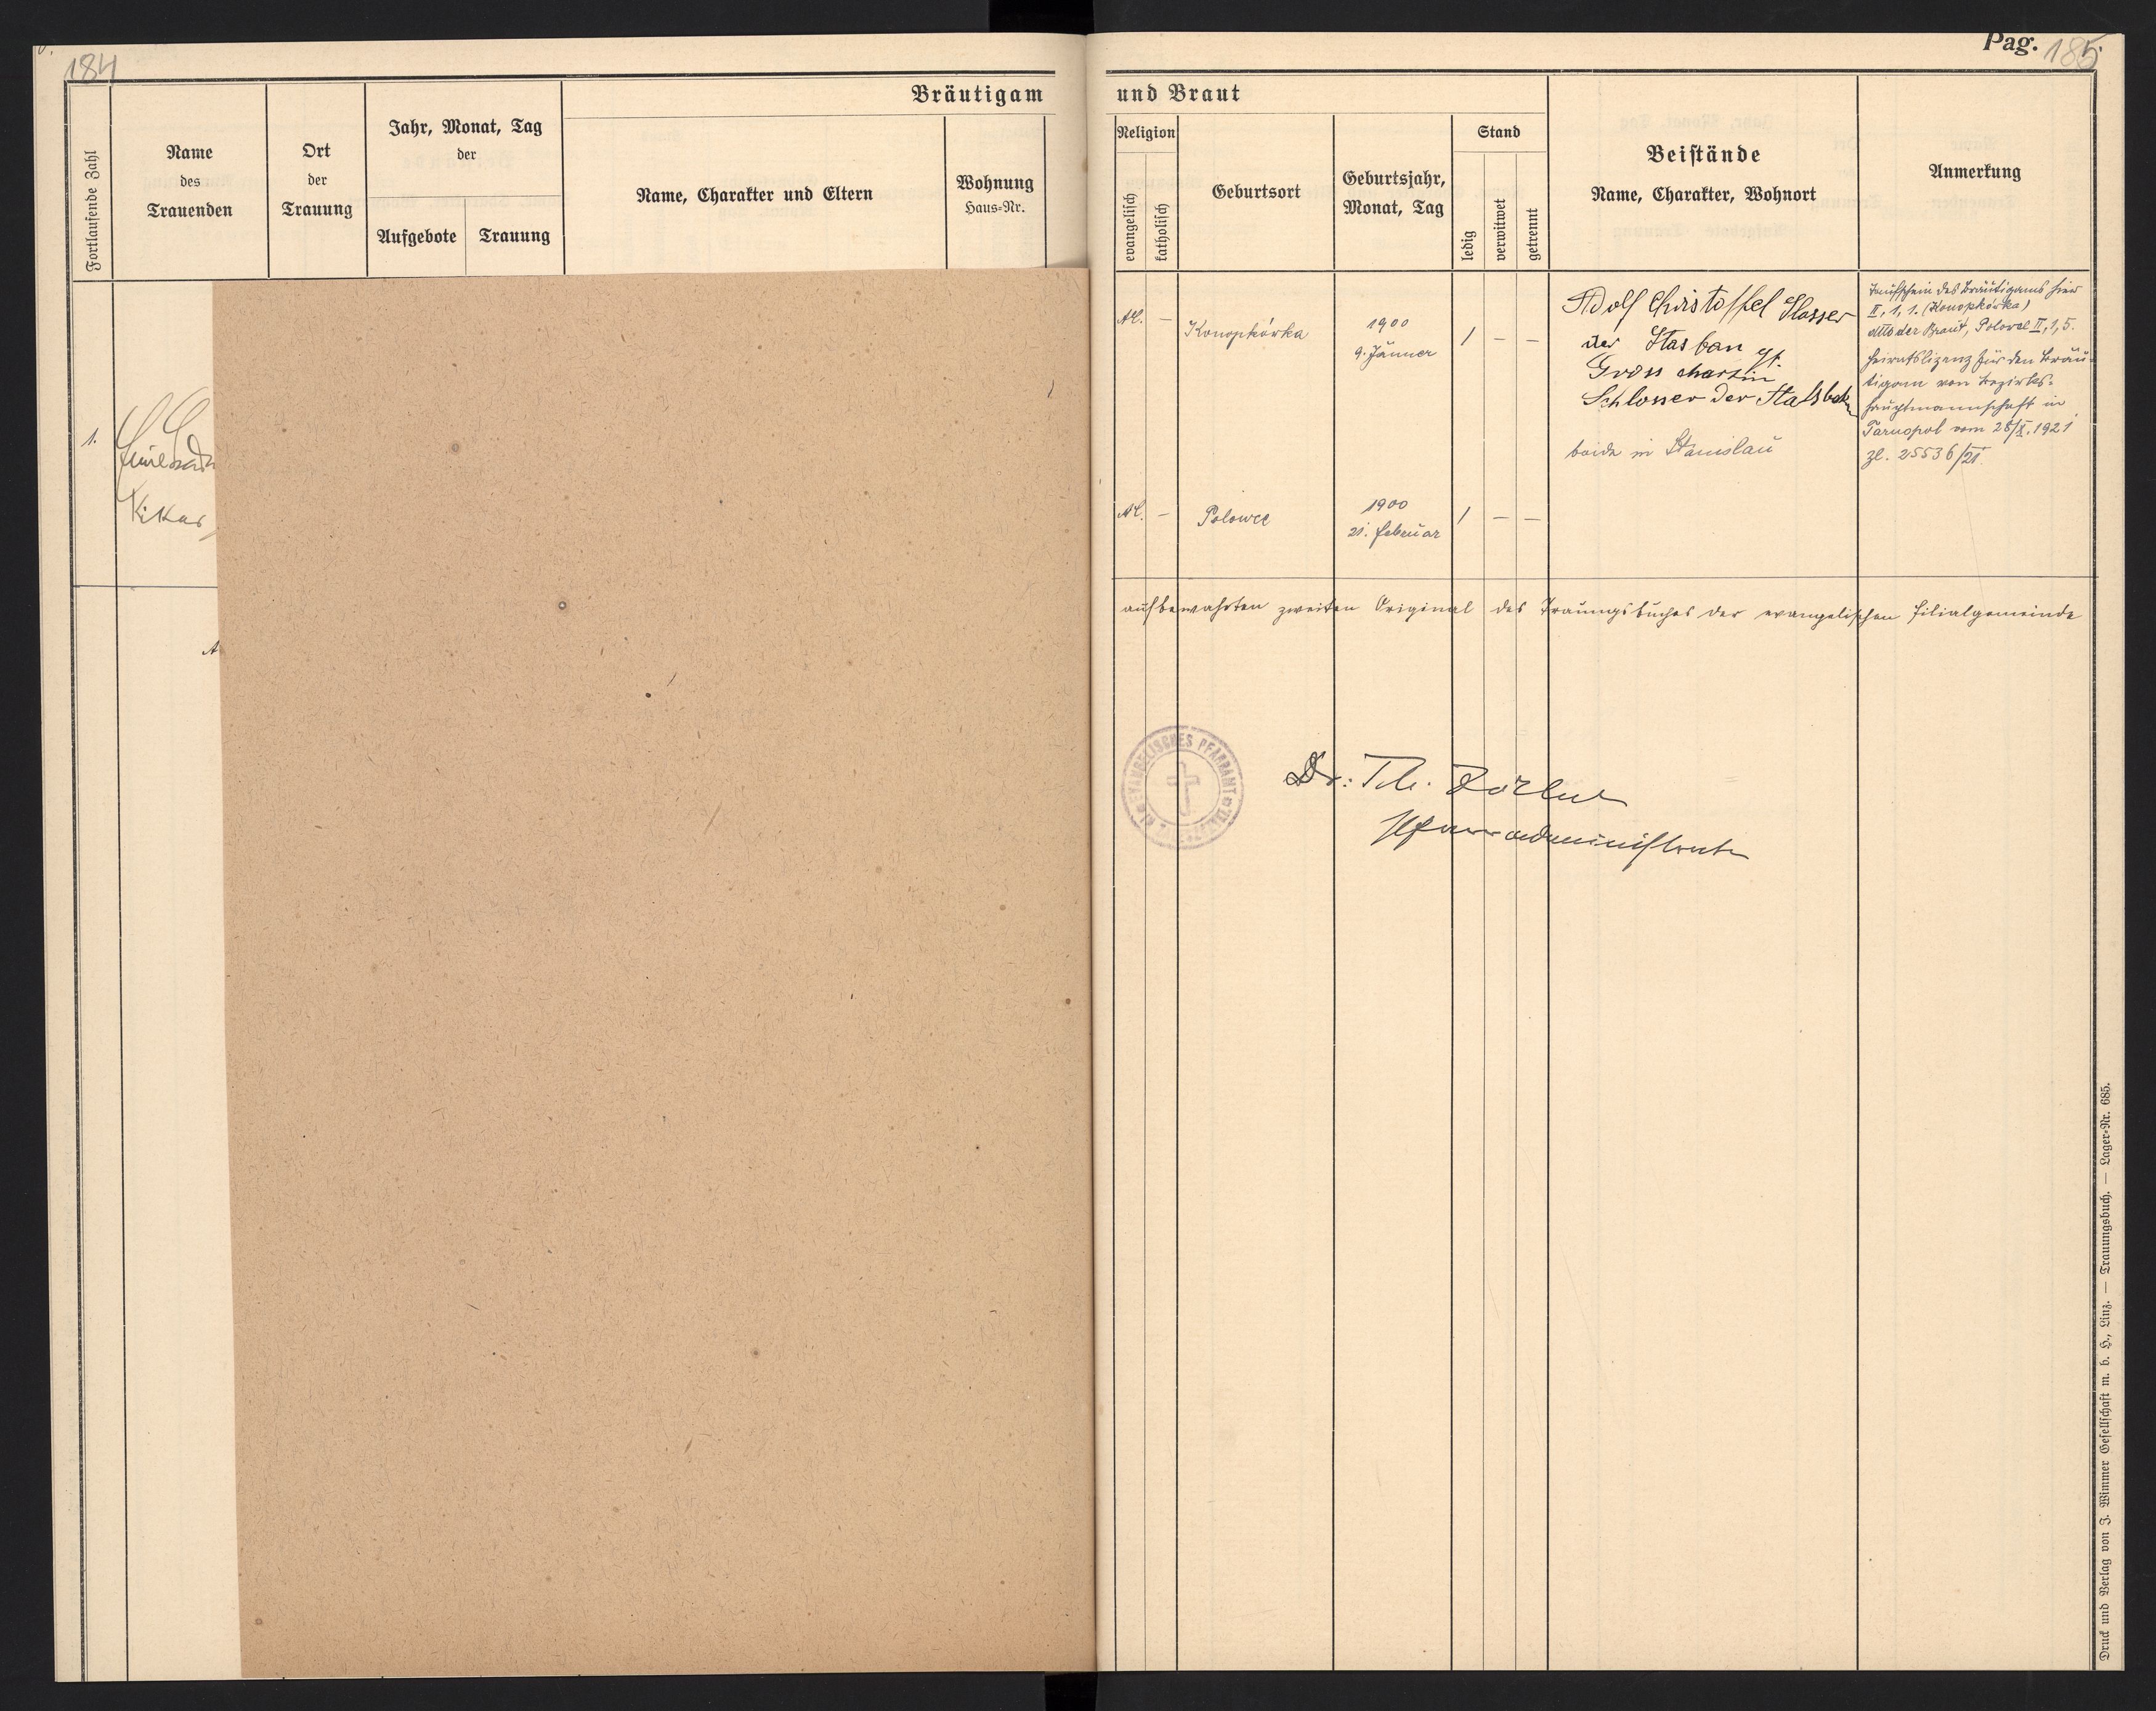 184
Bräutigam
Fortlaufende Zahl
Name
des
Trauenden
Ort
der
Trauung
Jahr, Monat, Tag
der
Aufgebote
Trauung
Name, Charakter und Eltern
Wohnung
Haus-Nr.
1.
Pag. 185
und Braut
Religion
evangelisch
katholisch
Geburtsort
Geburtsjahr,
Monat, Tag
Stand
ledig
verwitwet
getrennt
Beistände
Name, Charakter, Wohnort
Anmerkung
AC. —
Konopkówka
1900
9. Jänner
1 — —
Adolf Christoffel Slosser
der Stasban
Gross Martin
Schlosser der Stalsbahn
beide in Stanislau
Taufschein des Bräutigams hier
II, 1, 1. (Konopkówka)
dtto der Braut, Polowce II, 1, 5.
Heiratslizenz für den Bräu-
tigam von Bezirks-
hauptmannschaft in
Tarnopol vom 28/X. 1921
Zl. 25536/21.
AC. —
Polowce
1900
21. Februar
1 — —
aufbewahrten zweiten Original des Trauungsbuches der evangelischen Filialgemeinde
EVANGELISCHES PFARRAMT
Dr: Th.
Pfarradministrator
Druck und Verlag von J. Wimmer Gesellschaft m. b. H., Linz. — Trauungsbuch. — Lager-Nr. 685.